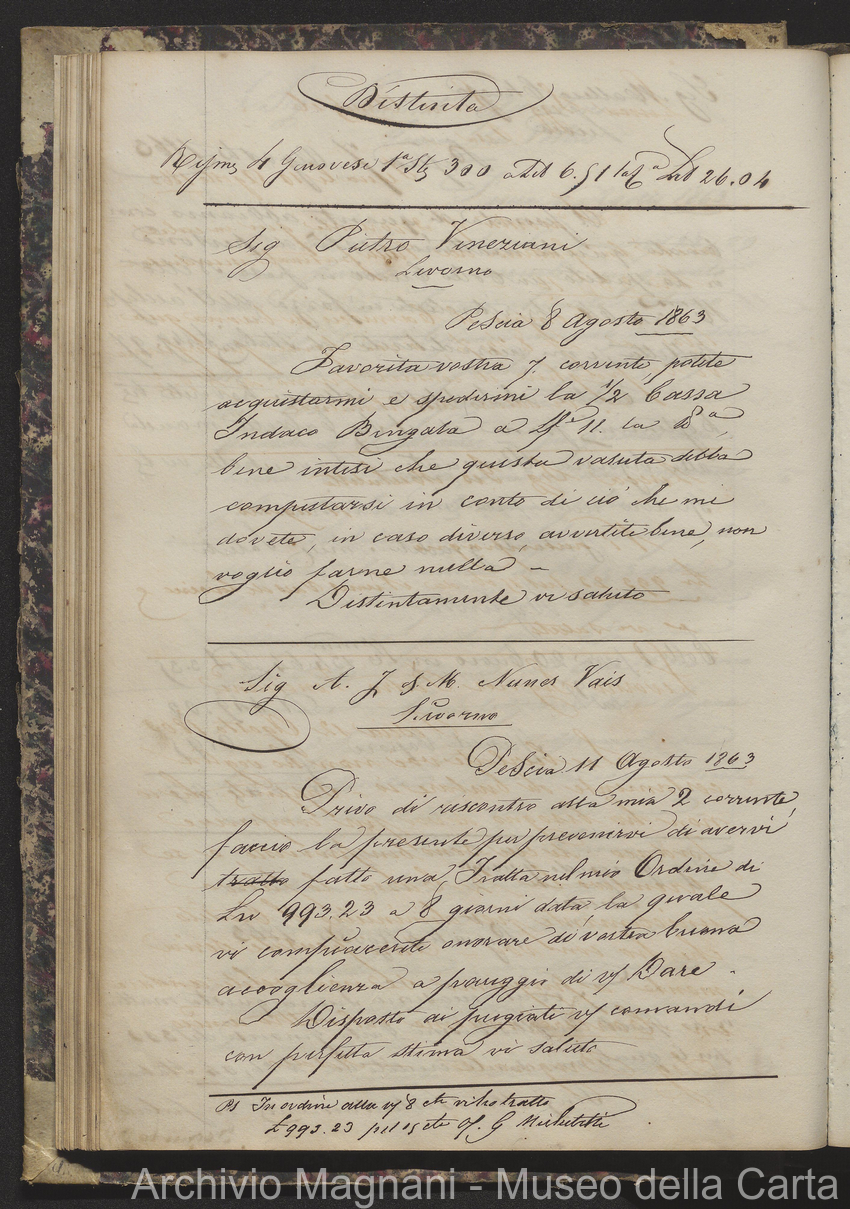 Distinta
4 Genovese 1ª 300 6.51 26.04
Sig Pietro Veneziani
Livorno
Pescia 8 Agosto 1863
Favorita vostra 7. corrente, potete
acquistarmi e spedirmi la 1/2 Cassa
Indaco Bengala a 11. la
bene intesi che questa valuta debba
computarsi in conto di ciò che mi
dovete, in caso diverso, avvertite bene, non
voglio farne nulla –
Distintamente vi saluto
Sig A. J. & M. Nunes Vais
Livorno
Pescia 11 Agosto 1863
Privo di riscontro alla mia 2 corrente,
faccio la presente per prevenirvi di avervi
tratto fatto una Tratta nel mio Ordine di
993.23 a 8 giorni data, la quale
vi compiacerete onorare di vostra buona
accoglienza a pareggio di v/ Dare –
Disposto ai pregiati v/ comandi
con perfetta stima vi saluto
PS In ordine alla v/ 8 vi ho tratto
£ 993.23 pel 15 G
Archivio Magnani - Museo della Carta